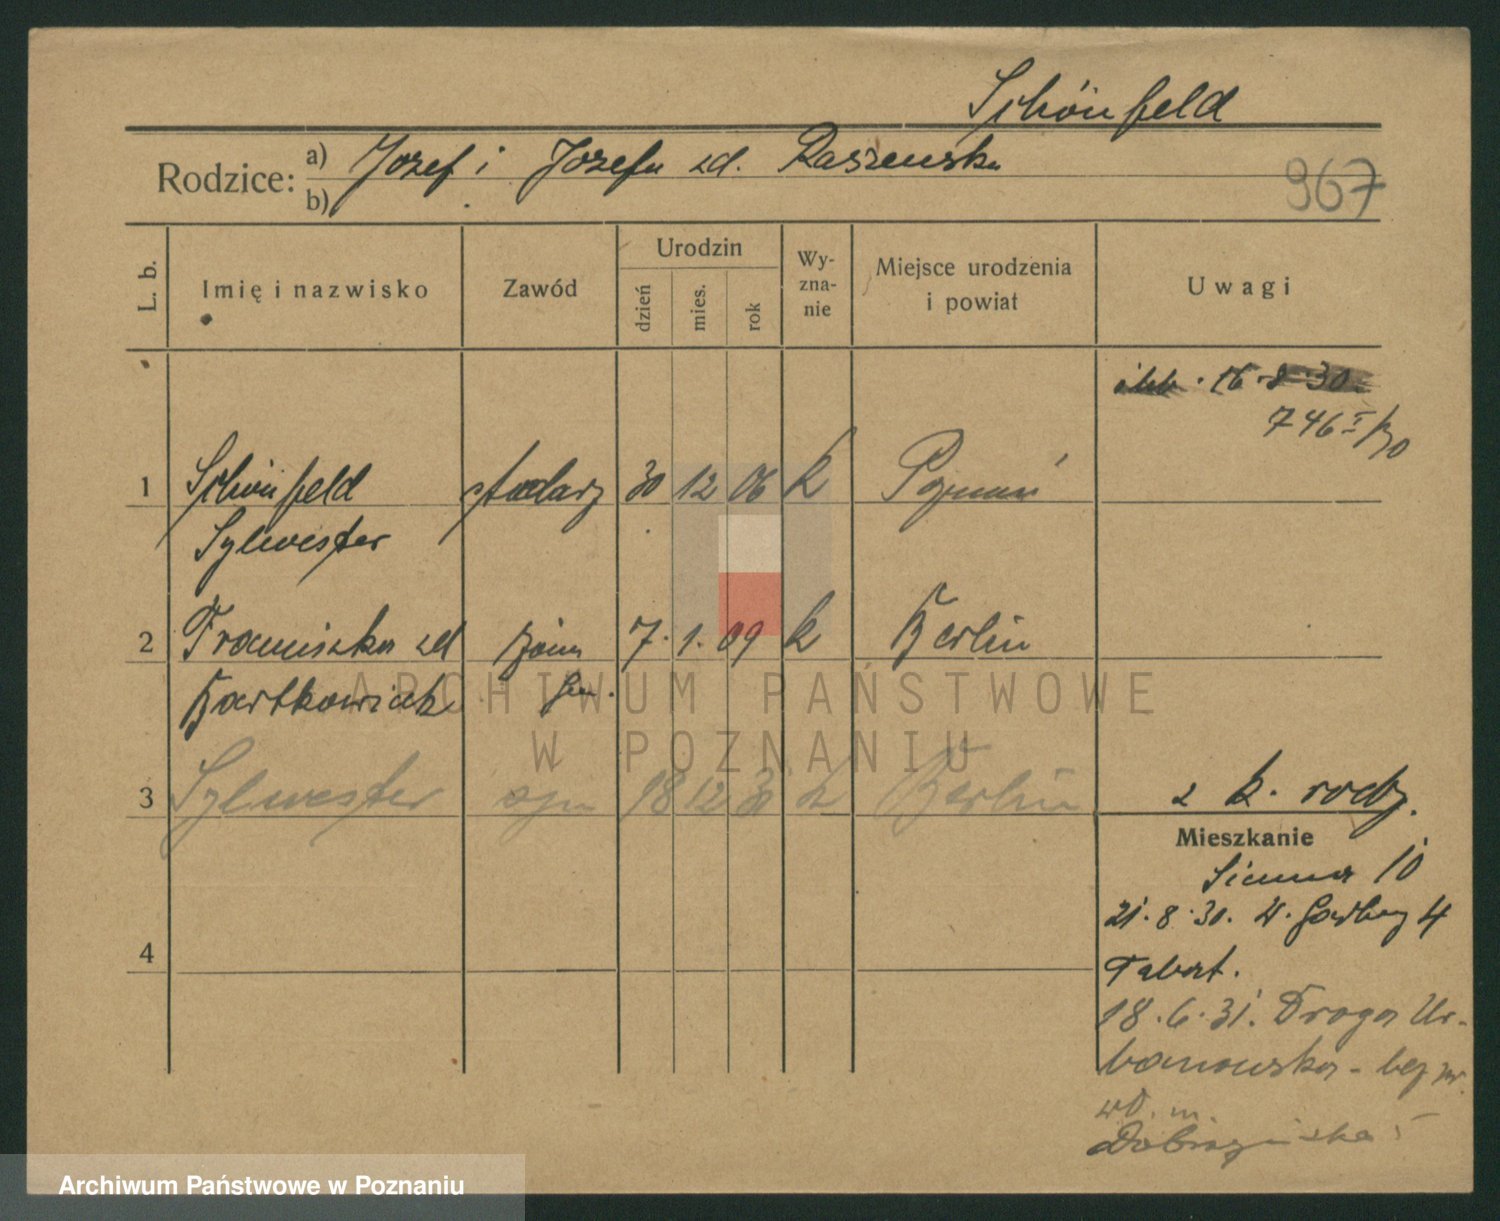 Schönfeld
Rodzice: a) Józef i Józefa zd. Raszewska
b)
967
L. b.
Imię i nazwisko
Zawód
Urodzin
dzień
mies.
rok
Wy-
zna-
nie
Miejsce urodzenia
i powiat
Uwagi
16.8.30.
746
1 Schönfeld stolarz 30 12 06 k Poznań
Sylwester
2 Franciszka zd 7. 1. 09 k Berlin
Bartkowiak
3 Sylwester syn 18 12 30 k Berlin
z k. rodz.
Mieszkanie
10
21.8.30. W. Garbary 4
18.6.31. Droga Ur-
banowska - bez nr.
zd. m.
4
ARCHIWUM PAŃSTWOWE
W POZNANIU
Archiwum Państwowe w Poznaniu